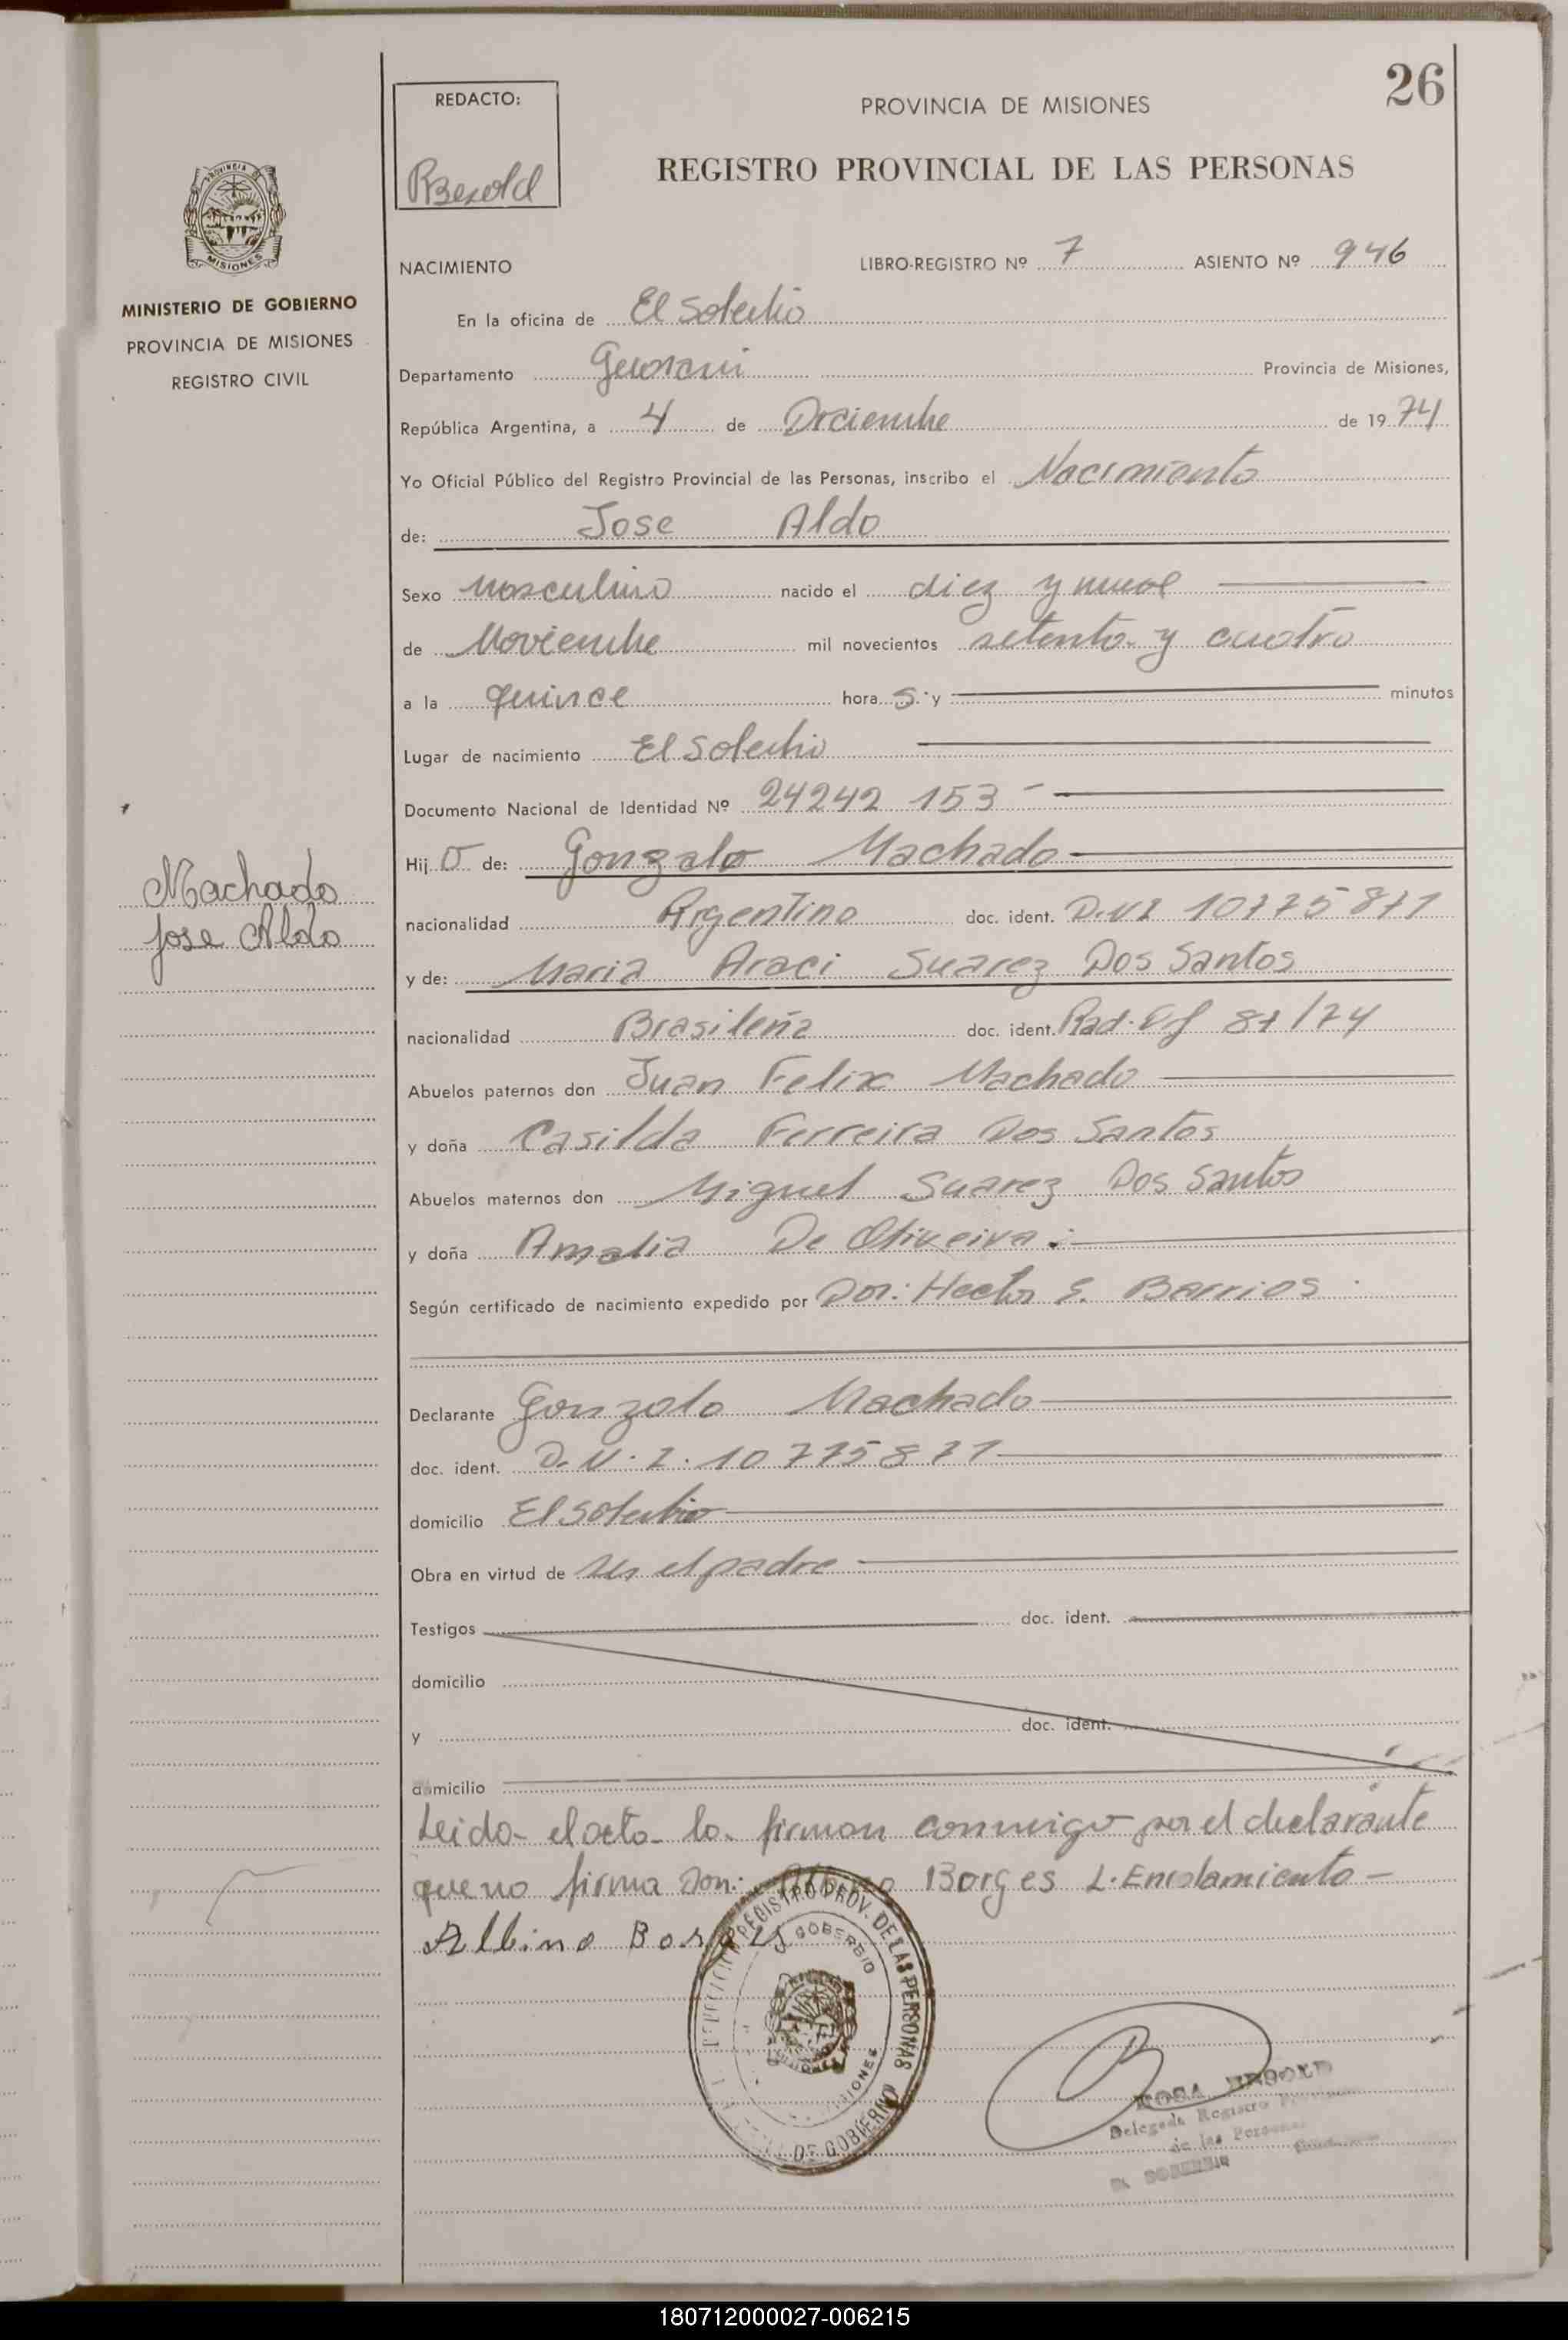 26
REDACTO:
RBezold
PROVINCIA DE MISIONES
REGISTRO PROVINCIAL DE LAS PERSONAS
PROVINCIA DE
MISIONES
MINISTERIO DE GOBIERNO
PROVINCIA DE MISIONES
REGISTRO CIVIL
NACIMIENTO
LIBRO-REGISTRO Nº 7 ASIENTO Nº 946
En la oficina de El Soberbio
Departamento Guarani Provincia de Misiones,
República Argentina, a 4 de Diciembre de 19 74
Yo Oficial Público del Registro Provincial de las Personas, inscribo el Nacimiento
de: Jose Aldo
Sexo Masculino nacido el diez y nueve
de Noviembre mil novecientos setenta y cuatro
a la quince hora s. y minutos
Lugar de nacimiento El Soberbio
Documento Nacional de Identidad Nº 24242 153 -
Hij o de: Gonzalo Machado
Machado
Jose Aldo
nacionalidad Argentino doc. ident. D.N.I 10775871
y de: Maria Araci Suarez Dos Santos
nacionalidad Brasileña doc. ident. Rad. 87/74
Abuelos paternos don Juan Felix Machado
y doña Casilda Ferreira Dos Santos
Abuelos maternos don Miguel Suarez Dos Santos
y doña Amalia De Oliveira.
Según certificado de nacimiento expedido por Dor: Hector E. Barrios
Declarante Gonzalo Machado
doc. ident. D.N.I. 10775871
domicilio El Soberbio
Obra en virtud de ser el padre
Testigos doc. ident.
domicilio
y doc. ident.
domicilio
Leida el acta la firman conmigo por el declarante
que no firma Don: Albino Borges L. Enrolamiento -
Albino Borges
REGISTRO PROV. DE LAS PERSONAS
SOBERBIO
MISIONES
DE GOBIERNO
ROSA BEZOLD
Delegada Registro
de las Personas
EL SOBERBIO
180712000027-006215